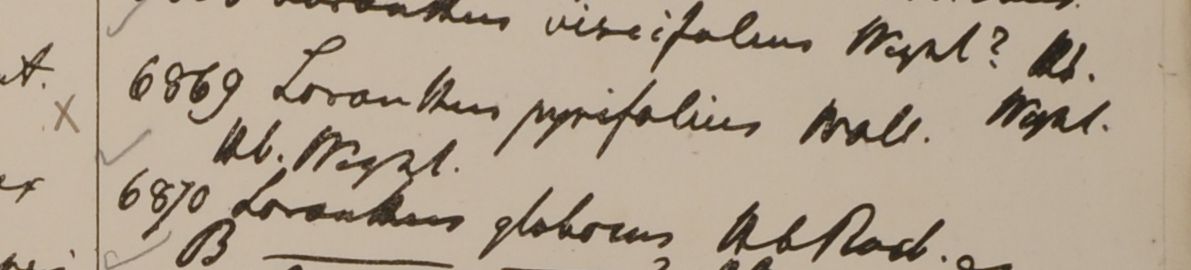 Loranthus viscifolius Wight? Hb.
Wight.
6869 Loranthus pyrifolius Wall.
Hb. Wight.
6870 Loranthus globosus Hb Roxb.
B